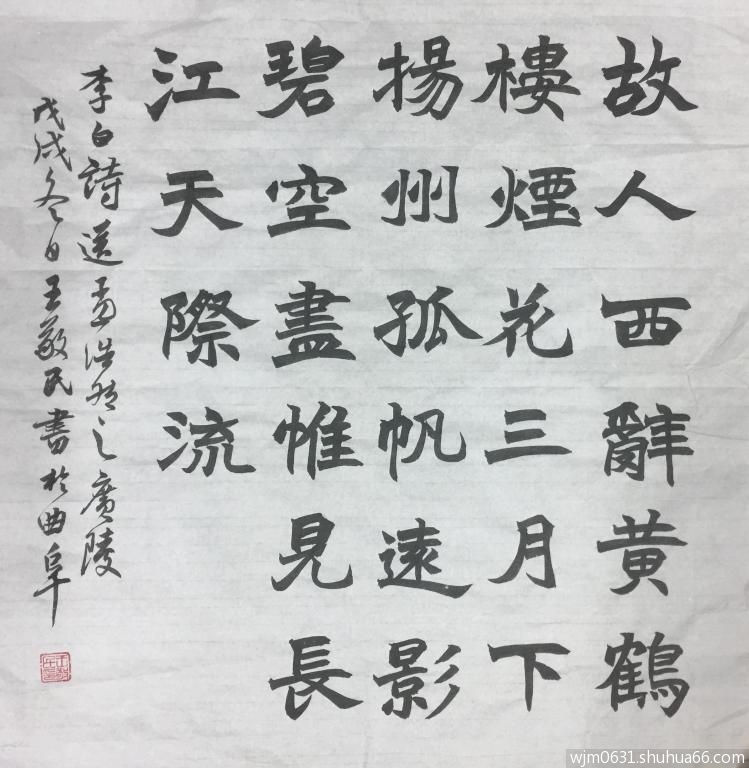 故人西辭黄鶴
樓煙花三月下
揚州孤帆遠影
碧空盡惟見長
江天際流
李白詩送孟浩然之廣陵
戊戌冬日王敬民書於曲阜
wjm0631.shuhua66.com